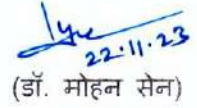 22.11.23
(डॉ. मोहन सेन)